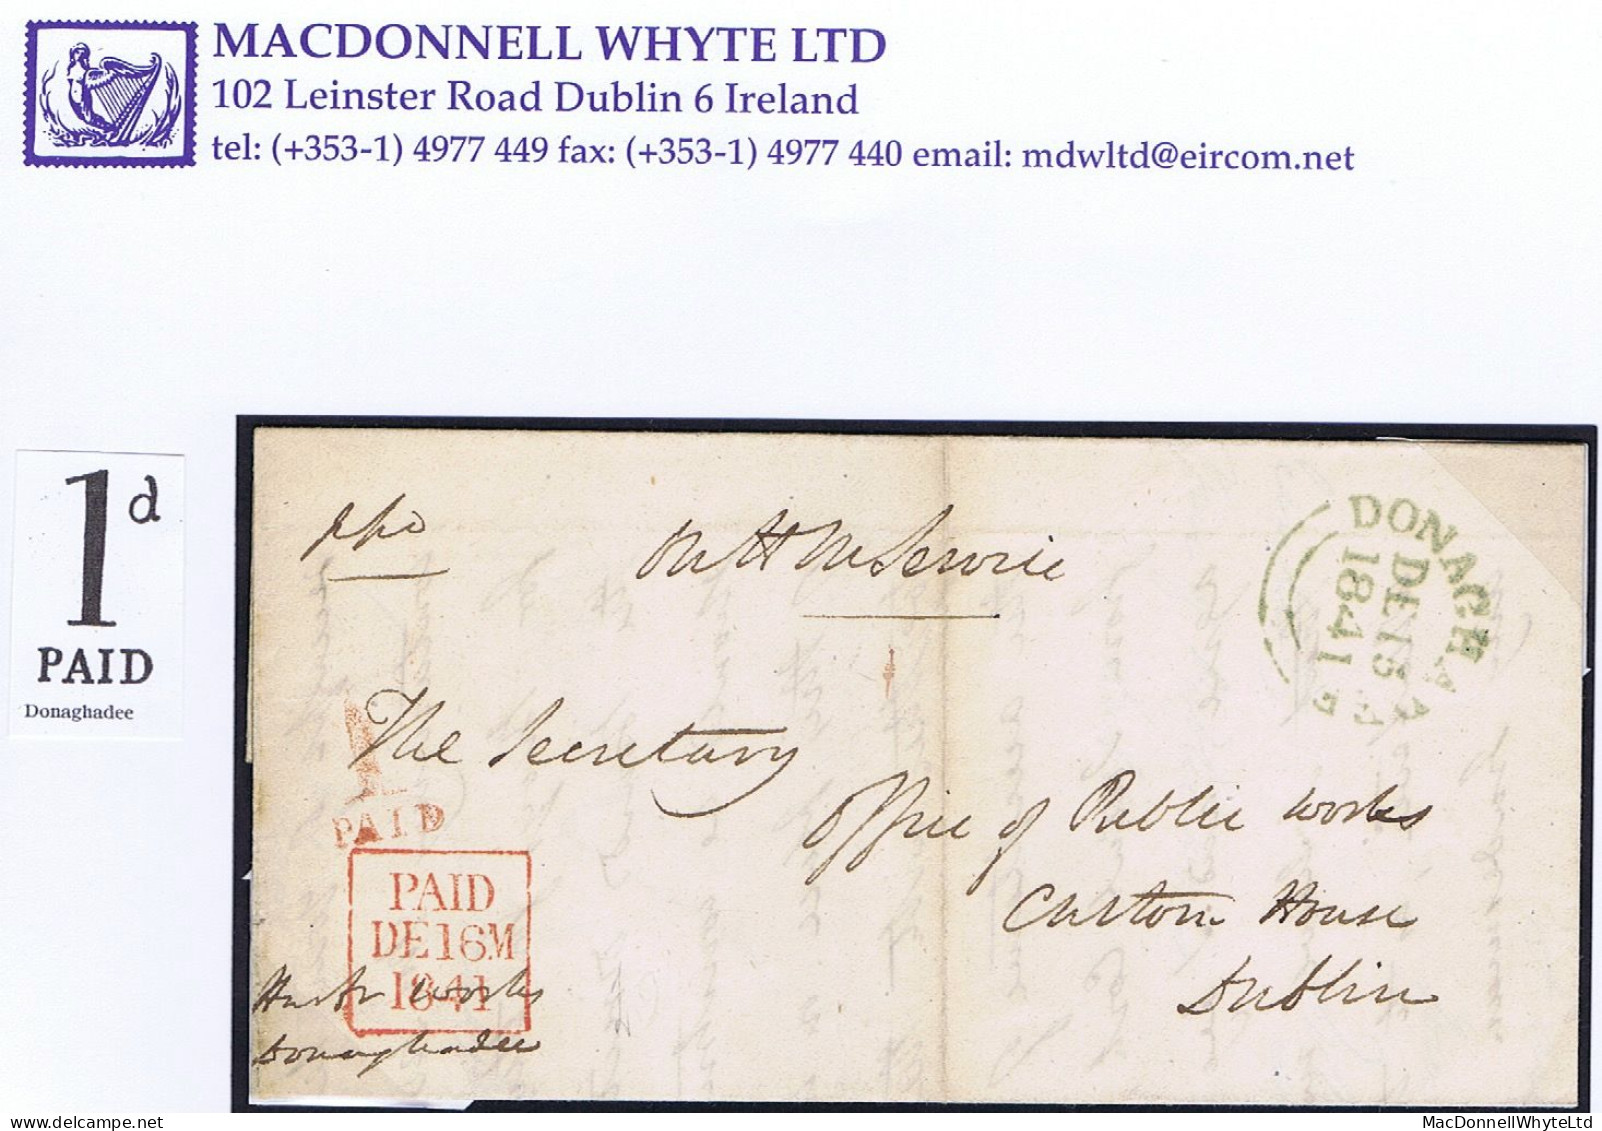 MACDONNELL WHYTE LTD
102 Leinster Road Dublin 6 Ireland
tel: (+353-1) 4977 449 fax: (+353-1) 4977 440 email: mdwltd@eircom.net
1d
PAID
Donaghadee
ppd
On H M Service
DONAGHADEE
DE 15
1841
The Secretary
Office of Public works
Custom House
Dublin
1
PAID
PAID
DE16M
1841
Harbr works
Donaghadee
MacDonnellWhyteLtd